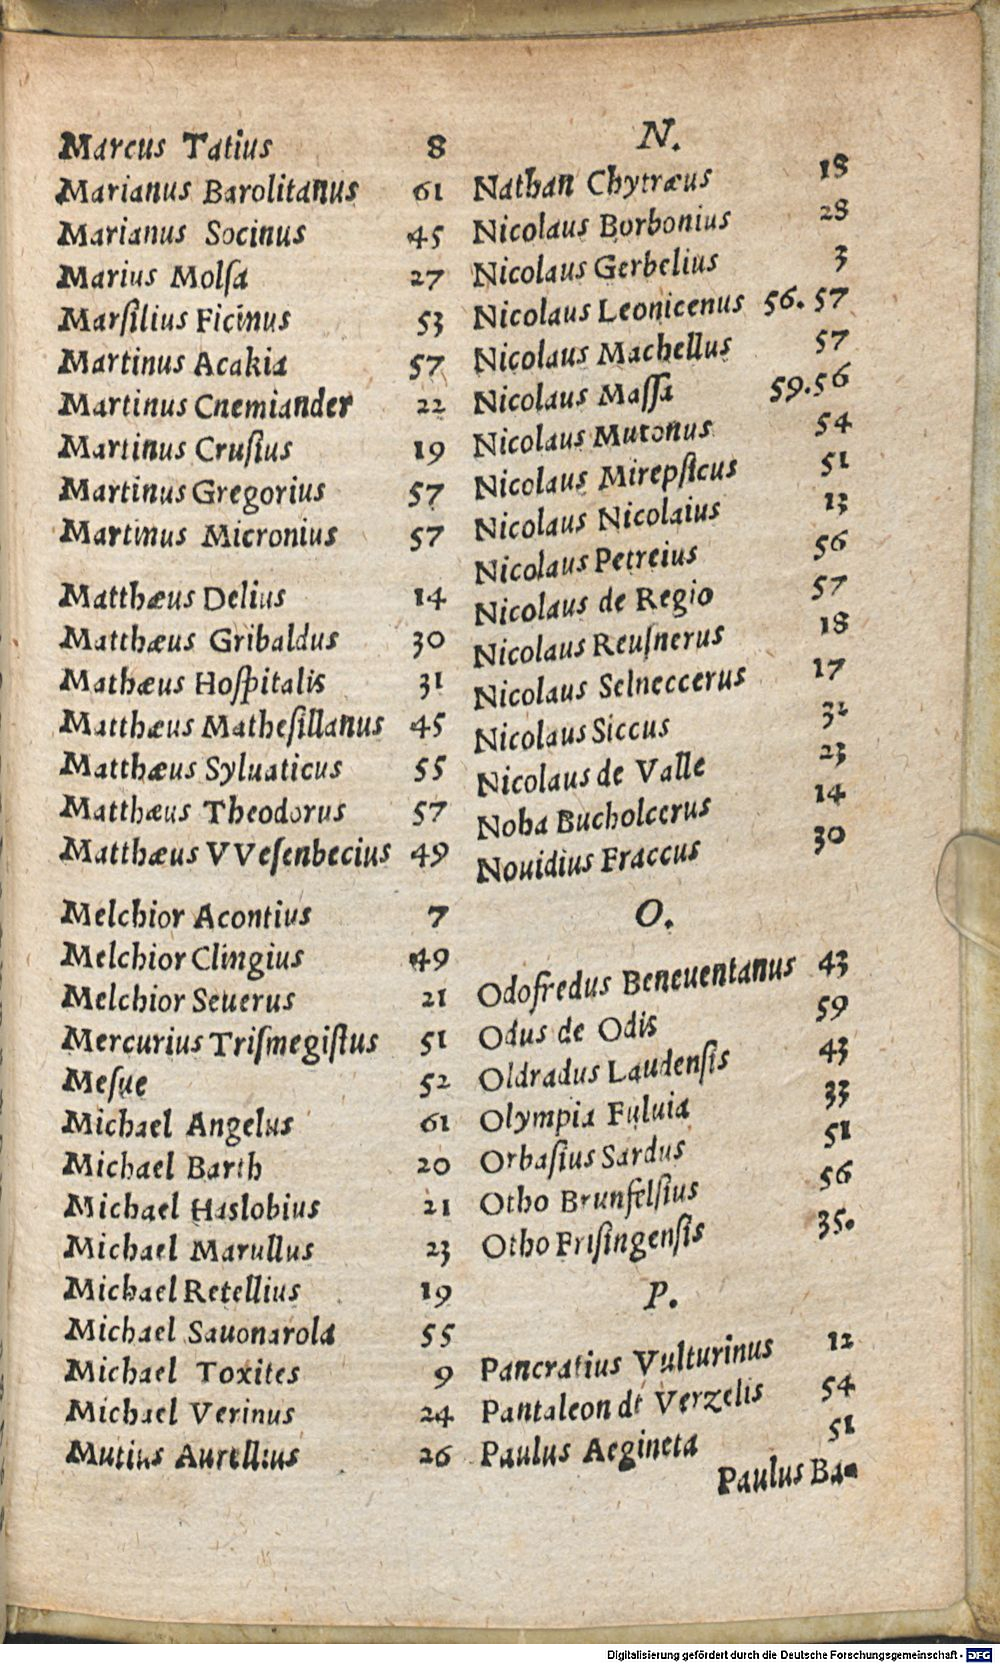 Marcus Tatius 8
Marianus Barolitanus 61
Marianus Socinus 45
Marius Molſa 27
Marſilius Ficinus 53
Martinus Acakia 57
Martinus Cnemiander 22
Martinus Cruſius 19
Martinus Gregorius 57
Martinus Micronius 57
Matthæus Delius 14
Matthæus Gribaldus 30
Mathæus Hoſpitalis 31
Matthæus Matheſillanus 45
Matthæus Syluaticus 55
Matthæus Theodorus 57
Matthæus VVeſenbecius 49
Melchior Acontius 7
Melchior Clingius 49
Melchior Seuerus 21
Mercurius Triſmegiſtus 51
Meſue 52
Michael Angelus 61
Michael Barth 20
Michael Haslobius 21
Michael Marullus 23
Michael Retellius 19
Michael Sauonarola 55
Michael Toxites 9
Michael Verinus 24
Mutius Aurellius 26
N.
Nathan Chytræus 18
Nicolaus Borbonius 28
Nicolaus Gerbelius 3
Nicolaus Leonicenus 56. 57
Nicolaus Machellus 57
Nicolaus Maſſa 59.56
Nicolaus Mutonus 54
Nicolaus Mirepſicus 51
Nicolaus Nicolaius 13
Nicolaus Petreius 56
Nicolaus de Regio 57
Nicolaus Reuſnerus 18
Nicolaus Selneccerus 17
Nicolaus Siccus
Nicolaus de Valle 23
Noha Bucholcerus 14
Nouidius Fraccus 30
O.
Odofredus Beneuentanus 43
Odus de Odis 59
Oldradus Laudenſis 43
Olympia Fuluia 33
Orbaſius Sardus 51
Otho Brunfelſius 56
Otho Friſingenſis 35.
P.
Pancratius Vulturinus 12
Pantaleon de Verzelis 54
Paulus Aegineta 51
Paulus Ba-
Digitalisierung gefördert durch die Deutsche Forschungsgemeinschaft - DFG